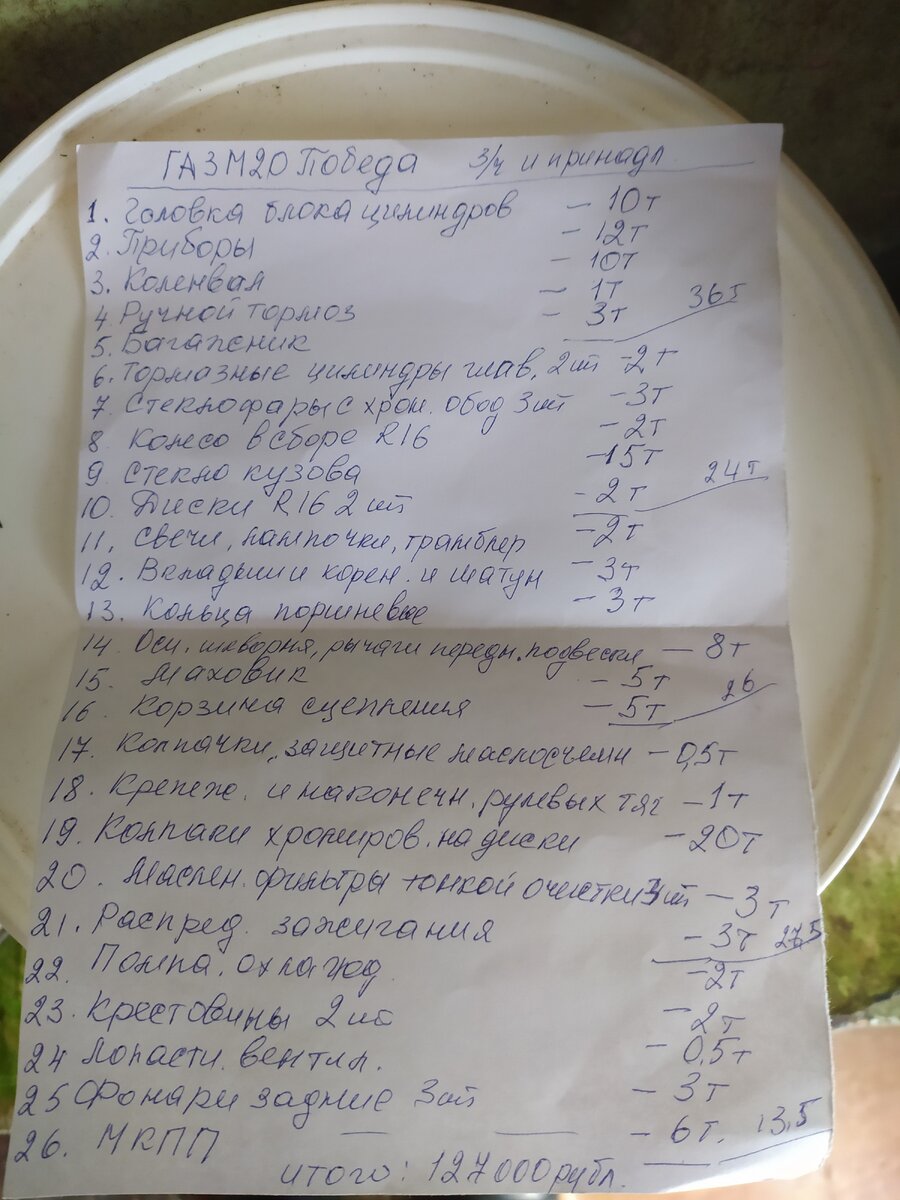 ГАЗ М20 Победа з/ч и принадл.
1. Головка блока цилиндров - 10т
2. Приборы - 12т
3. Коленвал - 10т
4 Ручной тормоз - 1т
5. Багажник - 3т 36т
6. Тормазные цилиндры глав. 2шт - 2т
7. Стеклофары с хром. обод 3шт - 3т
8. Колесо в сборе R16 - 2т
9. Стекло кузова - 15т
10. Диски R16 2 шт - 2т 24т
11. Свечи, лампочки, трамблер - 2т
12. Вкладыши корен. и шатун - 3т
13. Кольца поршневые - 3т
14. Оси, шкворня, рычаги передн. подвески - 8т
15. Маховик - 5т
16. Корзина сцепления - 5т 26
17. Колпачки, защитные маслосъемн - 0,5т
18. Крепеж. и наконечн. рулевых тяг - 1т
19. Колпаки хромиров. на диски - 20т
20. Маслен. фильтры тонкой очистки 3шт - 3т
21. Распред. зажигания - 3т 27,5
22. Помпа. охлажд. - 2т
23. Крестовины 2шт - 2т
24 Лопасти. вентил. - 0,5т
25 Фонари задние 3шт - 3т
26. МКПП - 6т. 13,5
итого: 127000рубл.